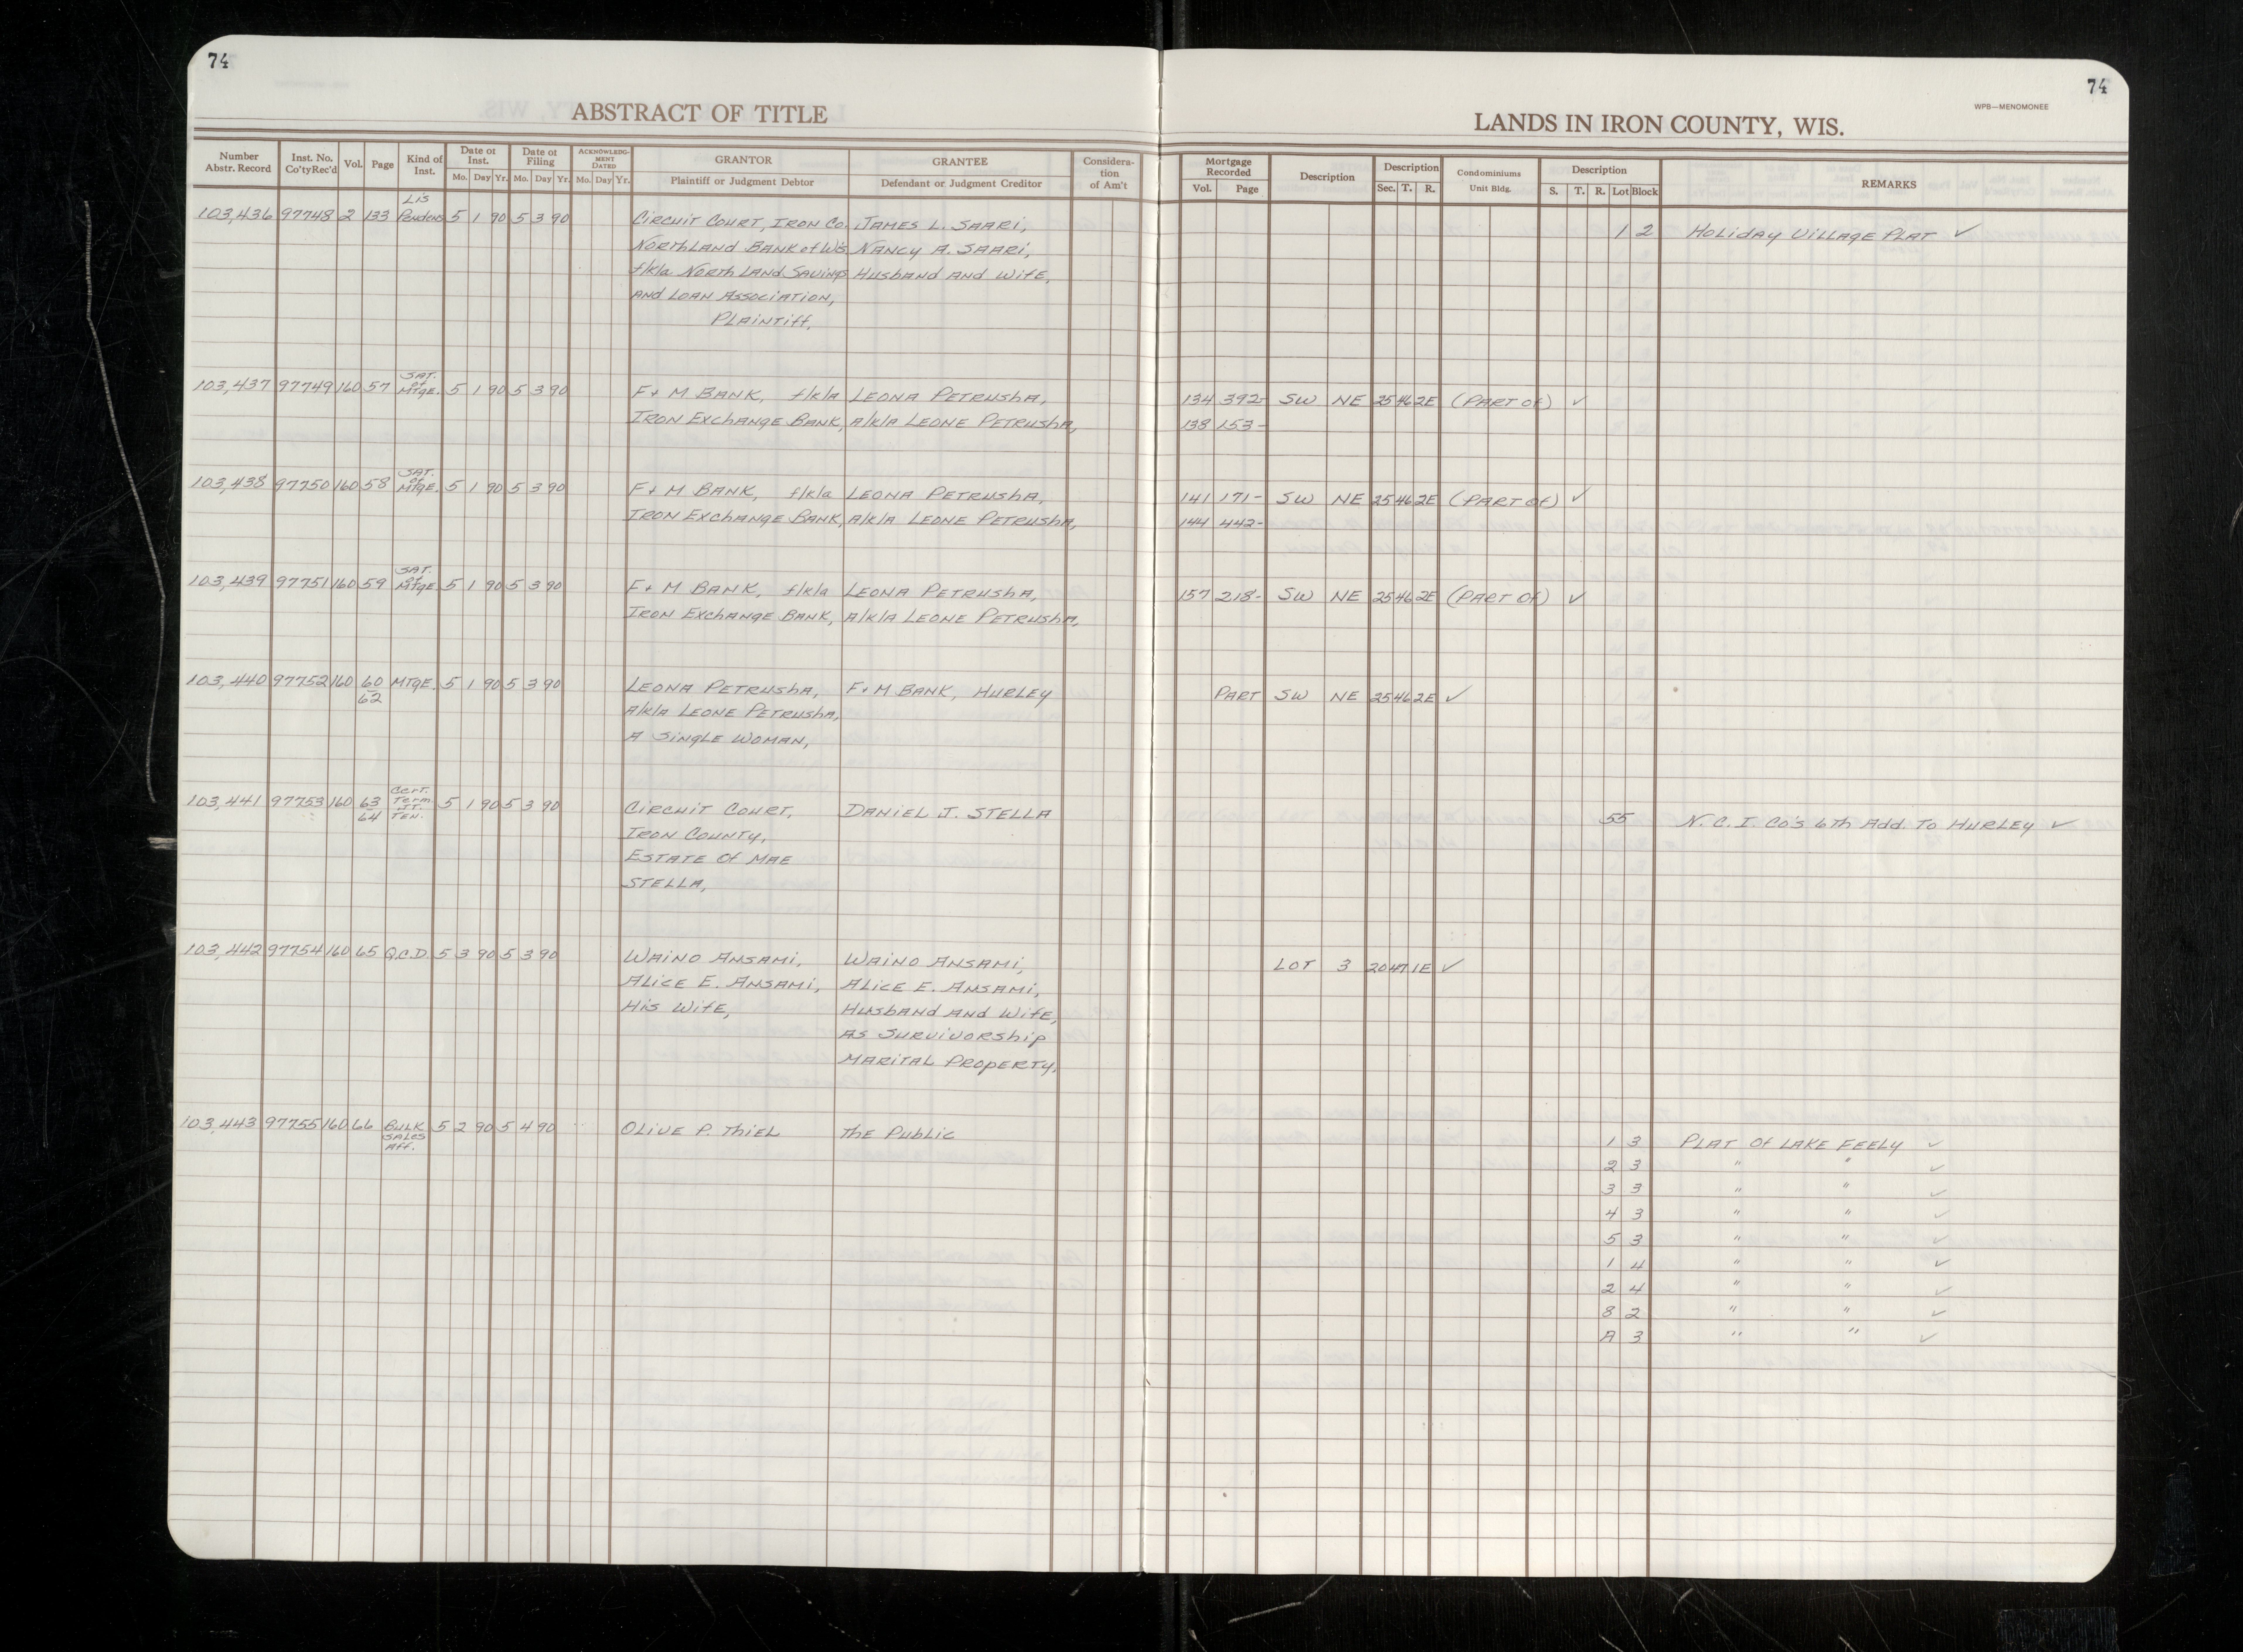 74
ABSTRACT OF TITLE
Number Abstr. Record | Inst. No. Co'ty Rec'd | Vol. | Page | Kind of Inst. | Date of Inst. Mo. Day Yr. | Date of Filing Mo. Day Yr. | ACKNOWLEDGMENT DATED Mo. Day Yr. | GRANTOR Plaintiff or Judgment Debtor | GRANTEE Defendant or Judgment Creditor | Consideration of Am't
74
WPB—MENOMONEE
LANDS IN IRON COUNTY, WIS.
Mortgage Recorded Vol. Page | Description | Description Sec. T. R. | Condominiums Unit Bldg. | Description S. T. R. Lot Block | REMARKS
Lis
103,436 97748 2 133 Pendens 5 1 90 5 3 90 Circuit Court, Iron Co. James L. Saari, 1 2 Holiday Village Plat ✓
Northland Bank of Wis. Nancy A. Saari,
f/k/a North Land Savings Husband and Wife,
and Loan Association,
Plaintiff,
Sat. of
103,437 97749 160 57 Mtge. 5 1 90 5 3 90 F+M Bank, f/k/a Leona Petrusha, 134 392- SW NE 25 46 2E (Part of) ✓
Iron Exchange Bank, a/k/a Leone Petrusha, 138 153-
Sat. of
103,438 97750 160 58 Mtge. 5 1 90 5 3 90 F+M Bank, f/k/a Leona Petrusha, 141 171- SW NE 25 46 2E (Part of) ✓
Iron Exchange Bank, a/k/a Leone Petrusha, 144 442-
Sat. of
103,439 97751 160 59 Mtge. 5 1 90 5 3 90 F+M Bank, f/k/a Leona Petrusha, 157 218- SW NE 25 46 2E (Part of) ✓
Iron Exchange Bank, a/k/a Leone Petrusha,
103,440 97752 160 60 Mtge. 5 1 90 5 3 90 Leona Petrusha, F+M Bank, Hurley Part SW NE 25 46 2E ✓
62 a/k/a Leone Petrusha,
A Single Woman,
Cert.
Term.
103,441 97753 160 63 Jt. 5 1 90 5 3 90 Circuit Court, Daniel J. Stella 55 N.C.I. Co's 6th Add. To Hurley ✓
64 Ten. Iron County,
Estate of Mae
Stella,
103,442 97754 160 65 Q.C.D. 5 3 90 5 3 90 Waino Ansami, Waino Ansami, Lot 3 20 47 1E ✓
Alice E. Ansami, Alice E. Ansami,
His Wife, Husband and Wife,
as Survivorship
Marital Property,
103,443 97755 160 66 Bulk 5 2 90 5 4 90 Olive P. Thiel The Public 1 3 Plat of Lake Feely ✓
Sales 2 3 " " ✓
Aff. 3 3 " " ✓
4 3 " " ✓
5 3 " " ✓
1 4 " " ✓
2 4 " " ✓
8 2 " " ✓
A 3 " " ✓